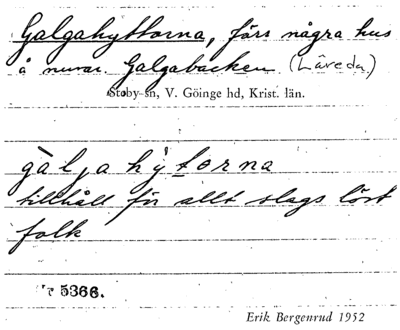 Galgahyttorna, förs några hus
å nuvar. Galgabacken (Låreda)
Stoby sn, V. Göinge hd, Krist. län.
gàlja hý torna
tillhåll för allt slags löst
folk
5366.
Erik Bergenrud 1952